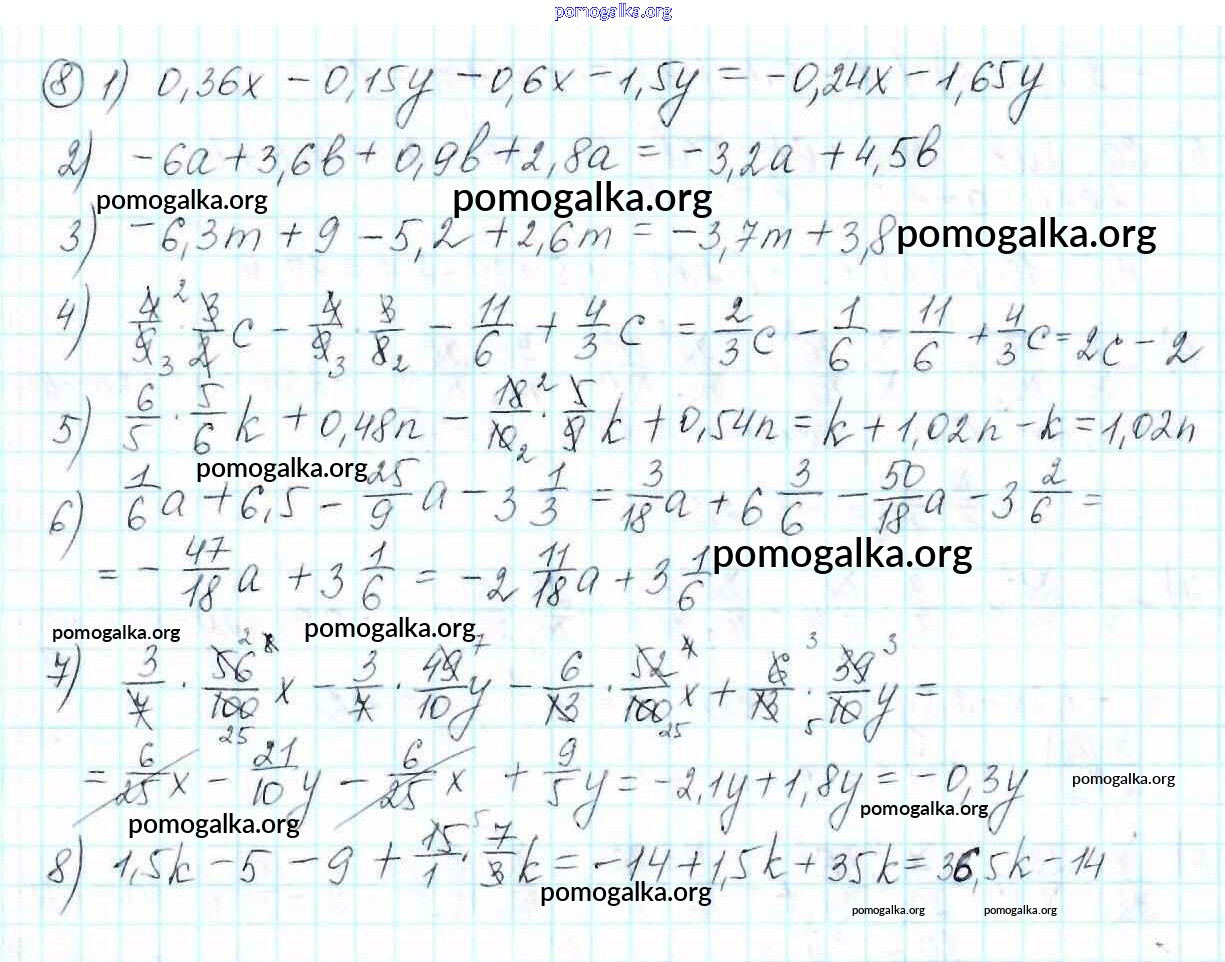 pomogalka.org
⑧ 1) 0,36x - 0,15y - 0,6x - 1,5y = -0,24x - 1,65y
2) -6a + 3,6b + 0,9b + 2,8a = -3,2a + 4,5b
pomogalka.org pomogalka.org
3) -6,3m + 9 - 5,2 + 2,6m = -3,7m + 3,8 pomogalka.org
4) 4/9 · 3/2 c - 4/9 · 3/8 - 11/6 + 4/3 c = 2/3 c - 1/6 - 11/6 + 4/3 c = 2c - 2
5) 6/5 · 5/6 k + 0,48n - 18/10 · 5/9 k + 0,54n = k + 1,02n - k = 1,02n
pomogalka.org
6) 1/6 a + 6,5 - 25/9 a - 3 1/3 = 3/18 a + 6 3/6 - 50/18 a - 3 2/6 =
= - 47/18 a + 3 1/6 = -2 11/18 a + 3 1/6 pomogalka.org
pomogalka.org pomogalka.org
7) 3/7 · 56/100 x - 3/7 · 49/10 y - 6/13 · 52/100 x + 6/13 · 39/10 y =
= 6/25 x - 21/10 y - 6/25 x + 9/5 y = -2,1y + 1,8y = -0,3y pomogalka.org
pomogalka.org pomogalka.org
8) 1,5k - 5 - 9 + 15/1 · 7/3 k = -14 + 1,5k + 35k = 36,5k - 14
pomogalka.org
pomogalka.org pomogalka.org